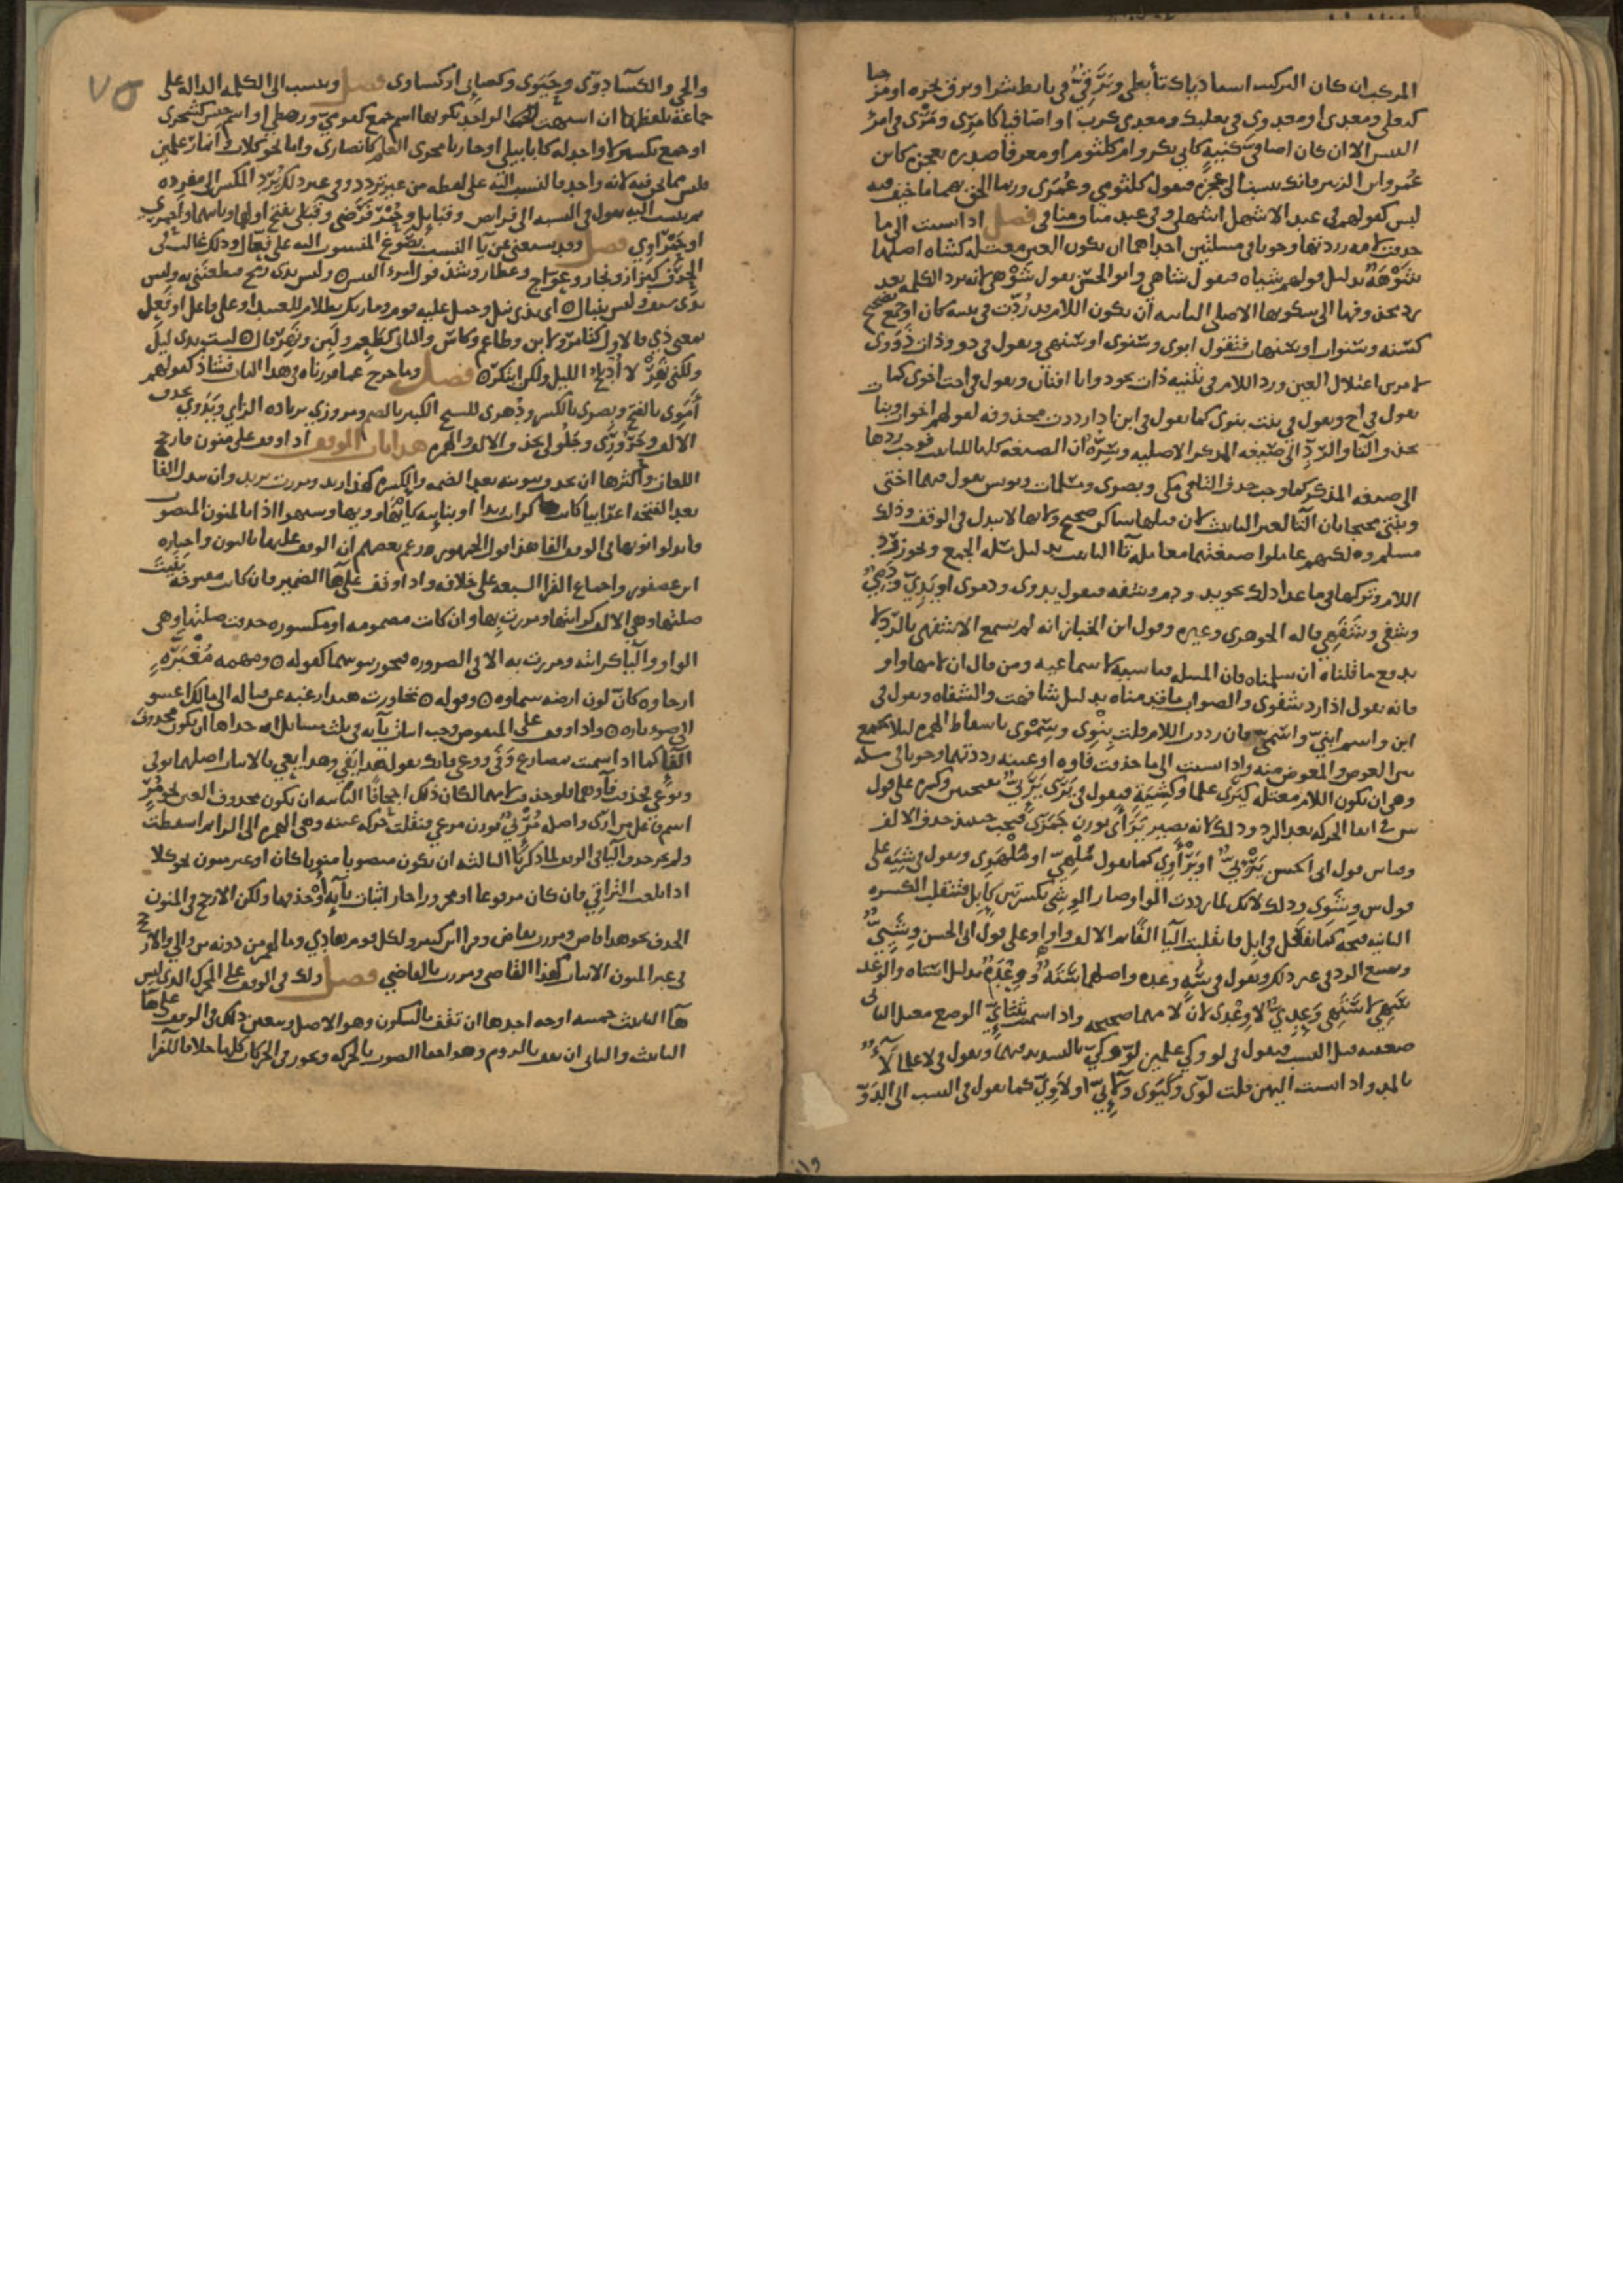 المركب ان كان التركيب اسناديا كتأبطي وبَرَقيّ في تأبط شرا وبرق نحره او مزجيا
كبعلي ومعدي او معدوي في بعلبك ومعدي كرب او اضافيا كامرئي ومَرَئي في امرئ
القيس الا ان كان اضافي كنيةٍ كابي بكر وام كلثوم او معرفا صدره بعجزه كابن
عُمر وابن الزبير فانك تنسب الى عجزه فتقول كلثومي وعُمَري وربما الحق بهما ما خيف فيه
لبس كقولهم في عبد الاشهل اشهلي وفي عبد مناف منافي فصل اذا نسبت الى ما
حذفت لامه رددتها وجوبا في مسئلتين احداهما ان يكون العين معتله كشاه اصلها
شَوْهَة بدليل قولهم شياه فتقول شاهي وابو الحسن يقول شَوْهي لانه يرد الكلمه بعد
رد محذوفها الى سكونها الاصلي الثانيه ان يكون اللام قد رُدّت في تثنيه كاب او جمع تصحيح
كسنه وسنوات او سنهات فتقول ابوي وسنوي او سنهي وتقول في ذو وذات ذَوَوي
لامرين اعتلال العين ورد اللام في تثنيه ذات نحو ذواتا افنان وتقول في اخت اخوي كما
تقول في اخ وتقول في بنت بنوي كما تقول في ابن اذا رددت محذوفه لقولهم اخوات وبنات
بحذف التا والرّدِّ الى صيغه المذكر الاصليه وسِرّه ان الصيغه كلها للتانيث فوجب ردها
الى صيغه المذكر كما وجب حذف التا في مكي وبصري ومسلمات ويونس يقول فيهما اختي
وبنتي محتجا بان التا لغير التانيث لان ما قبلها ساكن صحيح ولانها لا تبدل في الوقف ها وذلك
مسلم ولكنهم عاملوا صيغتهما معاملة تا التانيث بدليل مسئله الجمع ويجوز رد
اللام وتركها فيما عدا ذلك نحو يد ودم وشفه فتقول يدوي ودموي او يَدِيّ ودَمِيّ
وشفي وشَفَهي قاله الجوهري وغيره وقول ابن الخباز انه لم يسمع الا شفهي بالرد لا
يدفع ما قلناه ان سلمناه فان المسئله قياسيه لا سماعيه ومن قال ان لامها واو
فانه يقول اذا رد شفوي والصواب ما قدمناه بدليل شافهت والشفاه وتقول في
ابن واسم ابنيّ واسميّ فان رددت اللام قلت بنوي وسموي باسقاط الهمزه ليلا يجمع
بين العوض والمعوض منه واذا نسبت الى ما حذفت فاوه او عينه رددتهما وجوبا في مسئله
وهي ان تكون اللام معتله كيَرَى علما وكشِيَةٍ فتقول في يَرَى يَرَئيّ بفتحتين وكسره على قول
س في ابقا الحركه بعد الرد وذلك لانه يصير يَرَأى بوزن جَمَزَى فيجب حينئذ حذف الالف
وقياس قول ابي الحسن يَرْئيّ او يَرْأوي كما تقول مَلْهيّ او مَلْهَوي وتقول في شِيَه على
قول س وِشَوي وذلك لانك لما رددت الواو صار الوِشِي بكسرتين كإبِل فتقلب الكسره
الثانيه فتحه كما تفعل في إبل فانقلبت اليا الفا ثم الالف واوا وعلى قول ابي الحسن وِشْييّ
ويمتنع الرد في غير ذلك فتقول في سَهٍ وعده واصلهما سَتَهٌ ووِعْدَةٌ بدليل استاه والوعد
سَهِيّ لا سَتَهي وعِدِيّ لا وِعْدي لان لامهما صحيحه واذا سميت بثنائيّ الوضع معتل الثاني
ضعفته قبل النسب فتقول في لو وكي علمين لوّ وكيّ بالتشديد فيهما وتقول في لا علما لآءٌ
بالمد واذا نسبت اليهن قلت لوّي وكَيَوي ولائيّ او لاوِيّ كما تقول في النسب الى الدوّ
والحي والكسآ دوّي وحَيَوي وكسائي او كساوي فصل وينسب الى الكلمه الداله على
جماعه بلفظها ان اشبهت الواحد بكونها اسم جمع كقوميّ ورهطي او اسم جنس كشجري
او جمع تكسير لا واحد له كابابيلي او جاريا مجرى العلم كانصاري واما نحو كلاب وانمار علمين
فليس مما نحن فيه لانه واحد فالنسب اليه على لفظه من غير تردد وفي غير ذلك يُرَدّ المكسر الى مفرده
ثم ينسب اليه فتقول في النسبه الى فرائض وقبايل وحُمْر فَرَضي وقَبَلي بفتح اولهما وثانيهما واحمري
او حَمْراوي فصل وقد يستغنى عن يا النسب بصَوْغ المنسوب اليه على فَعّال وذلك غالب في
الحِرَف كبزاز ونجار وعواج وعطار وشذ قول امرء القيس ٥ وليس بذي رمح فيطعنني به وليس
بذي سيف وليس بنبال ٥ اي بذي نبل وحمل عليه قوم وما ربك بظلام للعبيد او على فاعل او فَعِل
بمعنى ذي فالاول كتامر ولابن وطاعم وكاس والثاني كطَعِم ولَبِن ونَهِر قال ٥ لست بليلي
ولكني نَهِر لا أدلج الليل ولكن ابتكر ٥ فصل وما خرج عما قررناه في هذا الباب فشاذ كقولهم
أمَوي بالفتح وبصري بالكسر ودُهري للشيخ الكبير بالضم ومروزي بزياده الزاي وبَدَوي بحذف
الالف وجَلُولي وحَرُوري بحذف الالف والهمزه هذا باب الوقف اذا وقف على منون فارجح
اللغات واكثرها ان يحذف تنوينه بعد الضمه والكسره كهذا زيد ومررت بزيد وان يبدل الفا
بعد الفتحه اعرابيا كانت كرايت زيدا او بنائيه كأيها وويها وشبهوا اذا بالمنون المنصوب
فابدلوا نونها في الوقف الفا هذا قول الجمهور وزعم بعضهم ان الوقف عليها بالنون واختاره
ابن عصفور واجماع القرا السبعه على خلافه واذا وقف على ها الضمير فان كانت مفتوحه بقيت
صلتها وهي الالف كرايتها ومررت بها وان كانت مضمومه او مكسوره حذفت صلتها وهي
الواو واليا كرايته ومررت به الا في الضروره فيجوز ثبوتهما كقوله ٥ ومهمه مُغْبَرّةٍ
ارجاوه كانّ لون ارضه سماوه ٥ وقوله ٥ تجاوزت هندا رغبه عن قتاله الى مالك اعشو
الى ضوء ناره ٥ واذا وقف على المنقوص وجب اثبات يائه في ثلث مسائل احداها ان يكون محذوف
الفا كما اذا سميت بمضارع وَفَى ووعى فانك تقول هذا يفي وهذا يعي بالاثبات لان اصلهما يوفي
ويوعي فحذفت فآوهما فلو حذفت لامهما لكان ذلك اجحافا الثانيه ان يكون محذوف العين نحو مُرٍ
اسم فاعل من أرَى واصله مُرْئيٌ بوزن مرعي فنقلت حركه عينه وهي الهمزه الى الرا ثم اسقطت
ولم يجز حذف اليا في الوقف لما ذكرنا الثالثه ان يكون منصوبا منونا كان او غير منون نحو كلا
اذا بلغت التراقي فان كان مرفوعا او مجرورا جاز اثبات يآئه وحذفها ولكن الارجح في المنون
الحذف نحو هذا قاض ومررت بقاض وقرا ابن كثير ولكل قوم هادي وما لهم من دونه من والي والارجح
في غير المنون الاثبات كهذا القاضي ومررت بالقاضي فصل ولك في الوقف على المحرك الذي ليس
هآ التانيث خمسه اوجه احدها ان تقف بالسكون وهو الاصل ويتعين ذلك في الوقف على هآ
التانيث والثاني ان تقف بالروم وهو اخفا الصوت بالحركه ويجوز في الحركات كلها خلافا للفرا